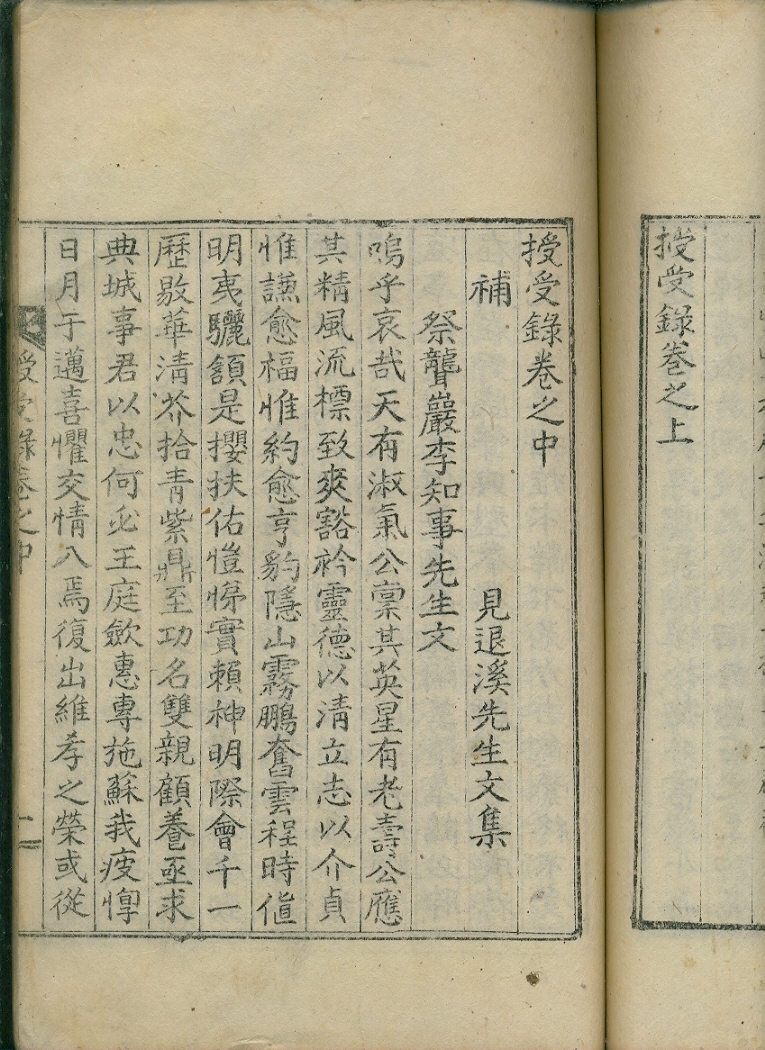 授受錄卷之上
授受錄卷之中
補 見退溪先生文集
祭聾巖李知事先生文
嗚乎哀哉天有淑氣公稟其英星有老壽公應
其精風流標致爽豁衿靈德以清立志以介貞
惟謙愈福惟約愈亨豹隱山霧鵬奮雲程時値
明夷驪額是攖扶佑愷悌實賴神明際會千一
歷敭華清芥拾青紫鼎至功名雙親顧養亟求
典城事君以忠何必王庭歛惠專施蘇我疲惸
日月于邁喜懼交情入焉復出維孝之榮或從
授受錄卷之中